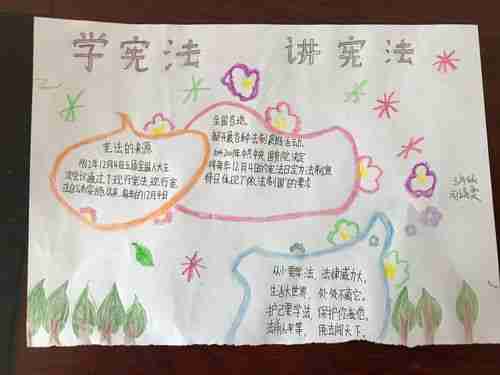 学宪法 讲宪法
宪法的来源
1982年12月4日五届全国人大五
次会议通过了现行宪法,现行宪
法
12月4日
全国各地
都开展各种法制宣传活动.
2001年中共中央,国务院决定
将每年12月4日的宪法日定为法制宣
传日体现了依法制国的要求
从小要学法,法律威力大,
生活大世界,处处不离它。
护己要学法,保护你我他,
法前人平等,用法闯天下。